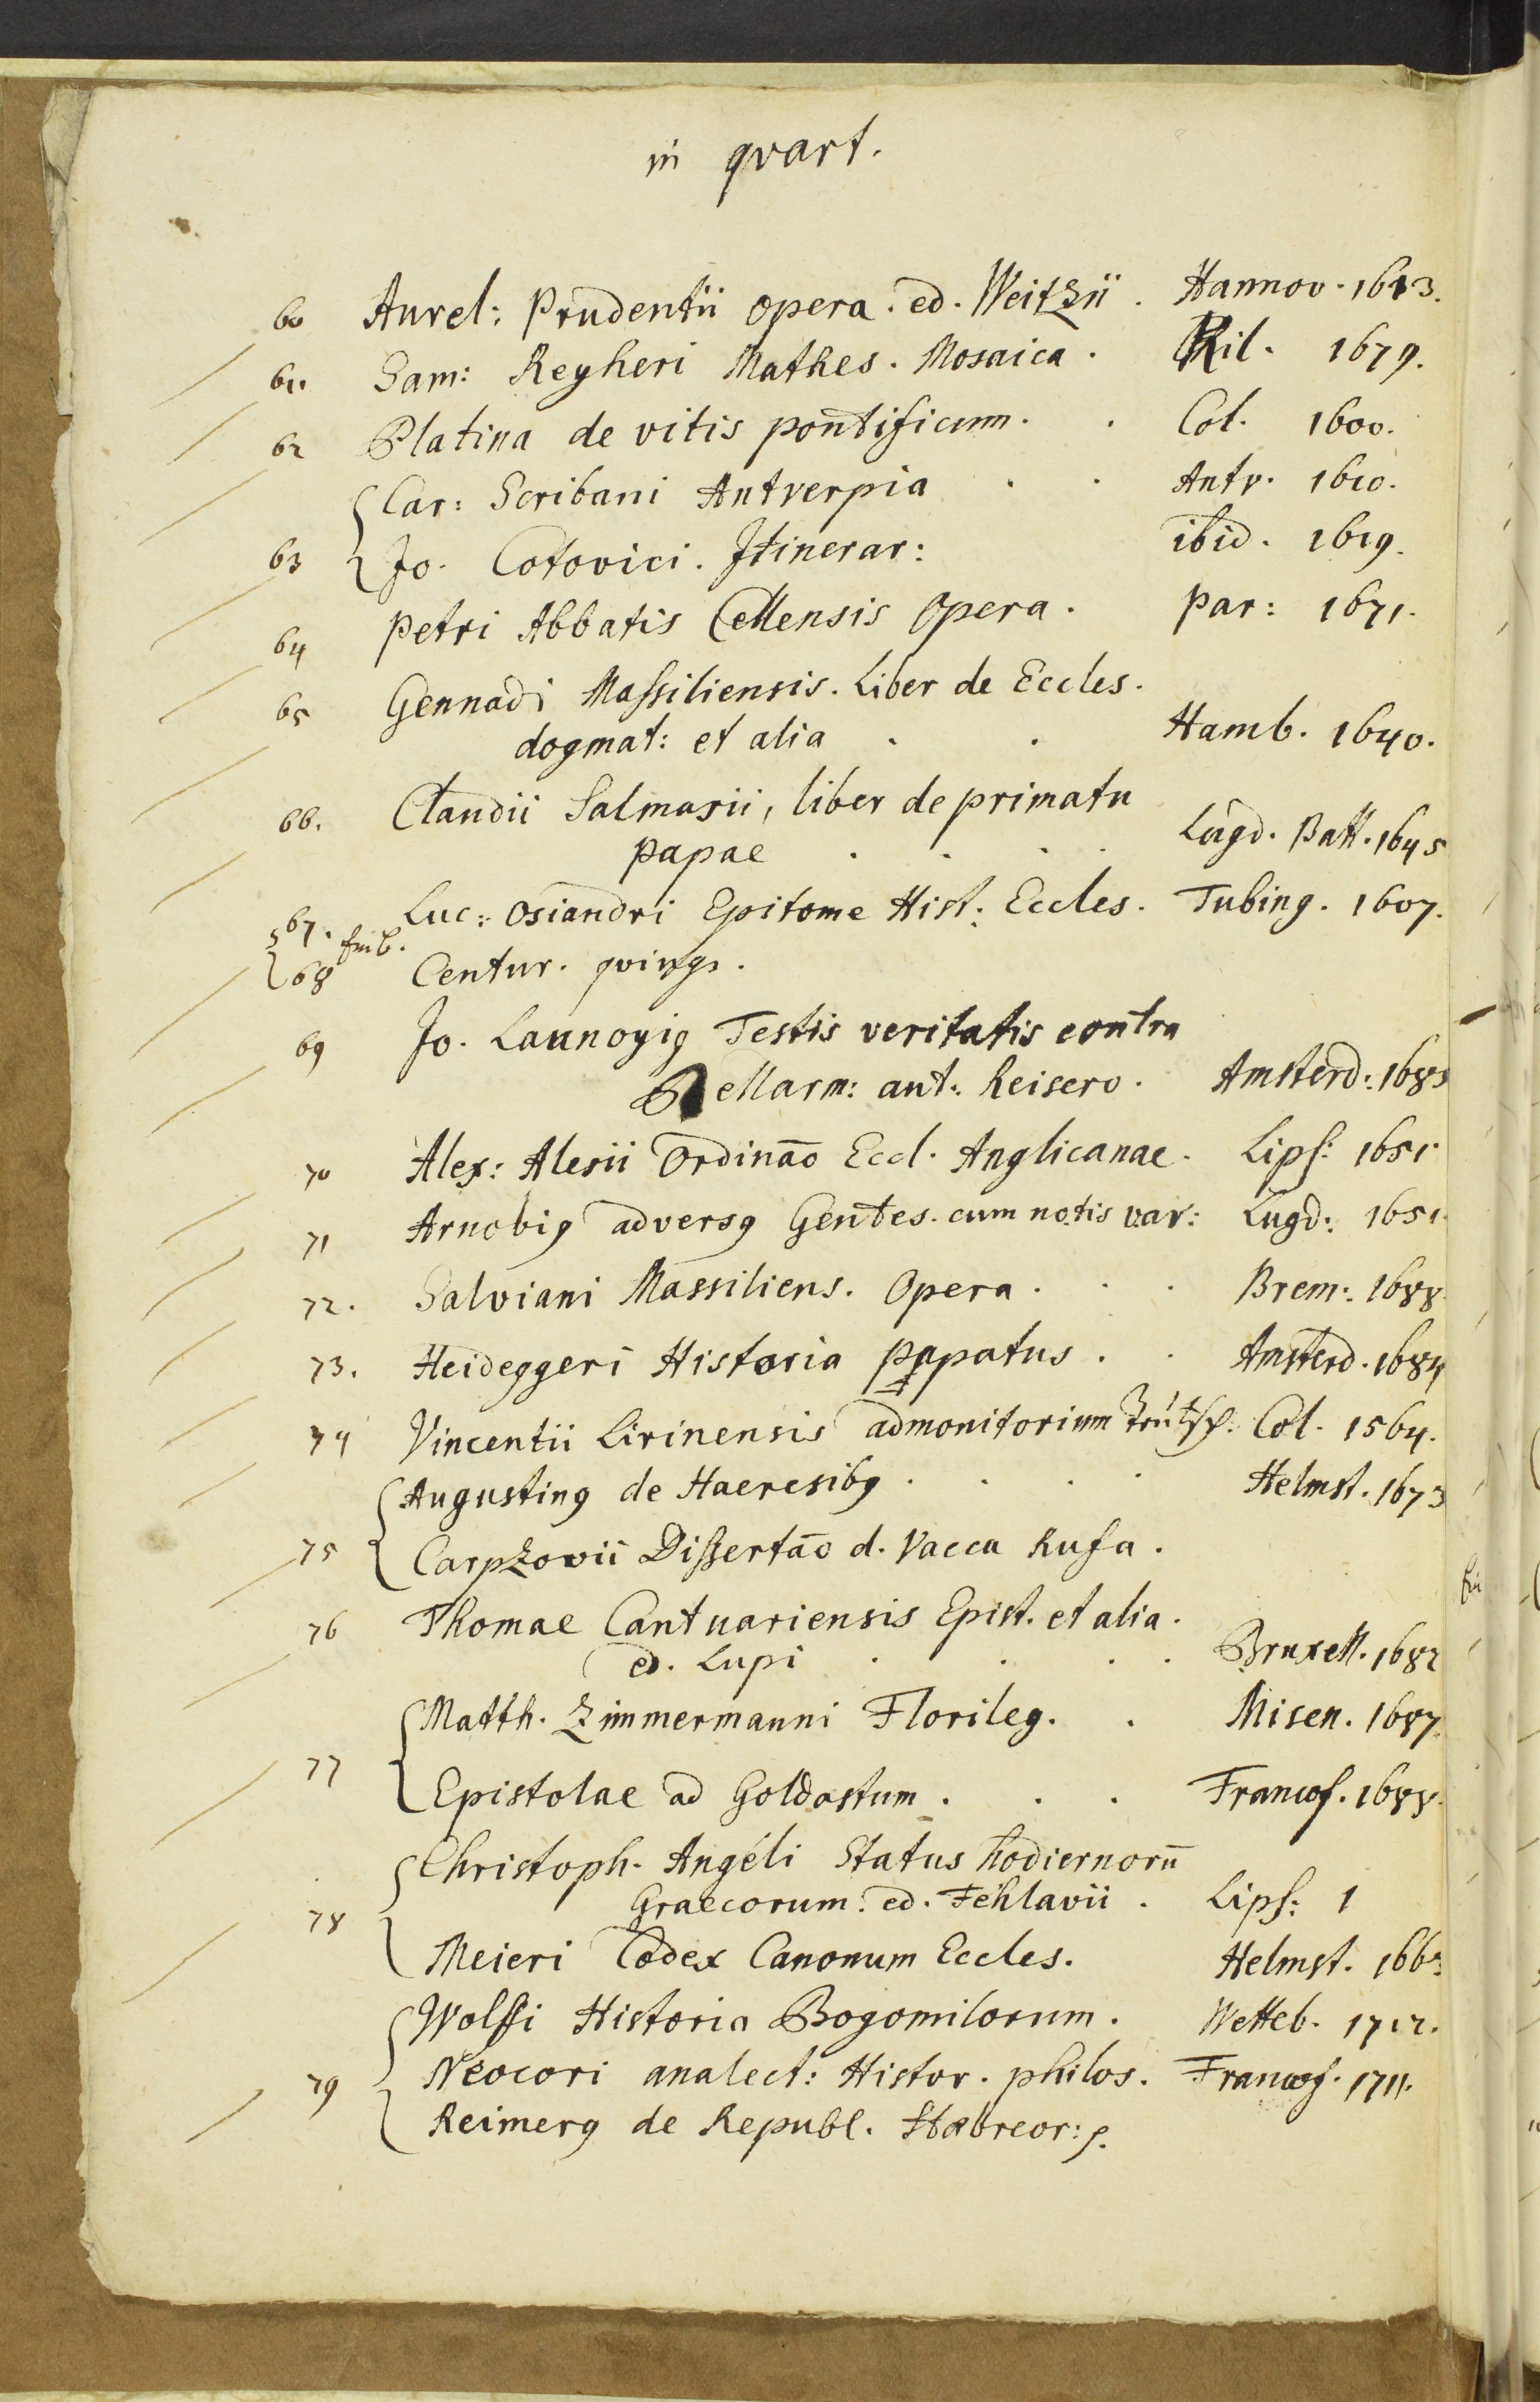 in qvart.
60 Aurel: Prudentii opera. ed. Weitzii. Hannov. 1613.
61. Sam: Reyheri Mathes. Mosaica. Kil. 1679.
62 Platina de vitis pontificum. . Col. 1600.
Car: Scribani Antverpia . . Antv. 1610.
63 Jo. Cotovici. Itinerar: ibid. 1619.
64 Petri Abbatis Cellensis Opera. Par: 1671.
65 Gennadi Massiliensis. Liber de Eccles.
dogmat: et alia . . Hamb. 1640.
66. Claudii Salmasii, liber de primatu
papae . . . . Lugd. Batt. 1645
67. Luc: Osiandri Epitome Hist: Eccles. Tubing. 1607.
68 Centur. qvinqs.
69 Jo. Launoyig Testis veritatis contra
Bellarm: aut: Reisero. Amsterd: 1685
70 Alex: Alesii Ordinao Eccl. Anglicanae. Lips: 1651.
71 Arnobig adversg Gentes. cum notis var: Lugd: 1651.
72. Salviani Massiliens. Opera. . . Brem: 1688.
73. Heideggeri Historia papatus. . Amsterd. 1684
74 Vincentii Lirinensis admonitorium Col. 1564.
Augusting de Haeresibg . . . . Helmst. 1673
75 Carpzovii Dissertao d. Vacca Rufa.
76 Thomae Cantuariensis Epist. et alia.
ed. Lupi . . . . Bruxell. 1682
Matth. Zimmermanni Florileg. . Misen. 1687.
77 Epistolae ad Goldastum. . . Francof. 1688.
Christoph. Angeli Status hodiernorū
78 Graecorum. ed. Fehlavii. Lips: 1
Meieri Codex Canonum Eccles. Helmst. 166
Wolffi Historia Bogomilorum. Witteb. 1712.
79 Neocori analect: Histor. philos. Francof. 1711.
Reimerg de Republ. Haebreor: